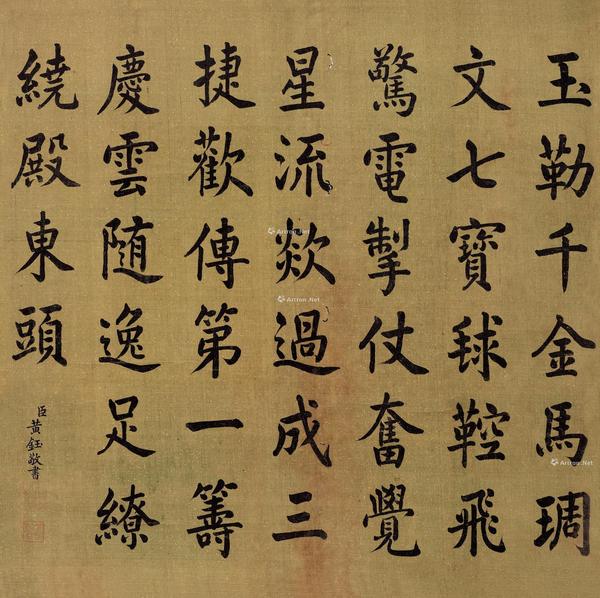 玉勒千金馬琱
文七寶毬鞚飛
驚電掣仗奮覺
星流欻過成三
捷歡傳第一籌
慶雲随逸足繚
繞殿東頭
臣黃鈺敬書
Artron.Net
Artron.Net
Artron.Net